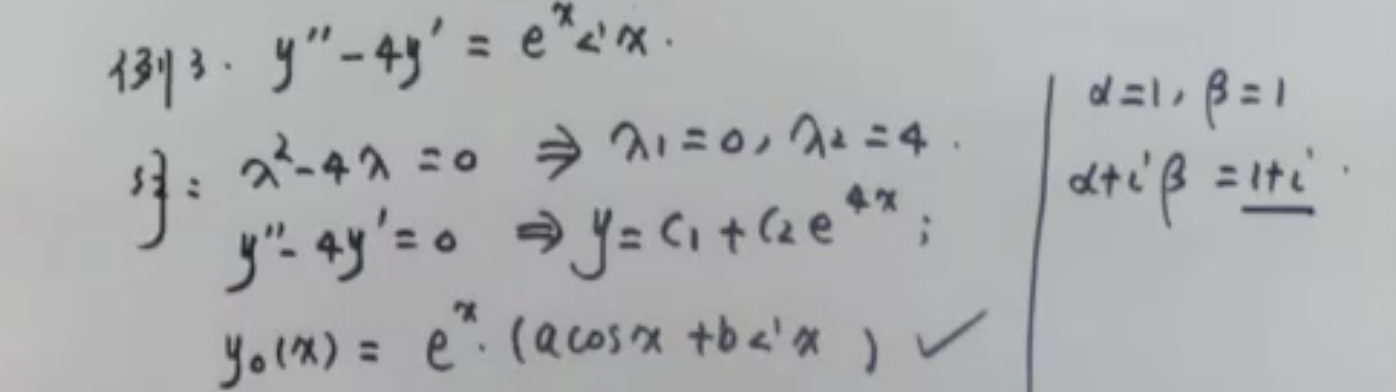 例3. y″-4y′ = eˣ sin x.
解: λ²-4λ = 0 ⇒ λ₁=0, λ₂=4.
y″-4y′=0 ⇒ y= C₁+C₂e⁴ˣ;
y₀(x) = eˣ·(a cos x + b sin x) ✓
α=1, β=1
α+iβ = 1+i.